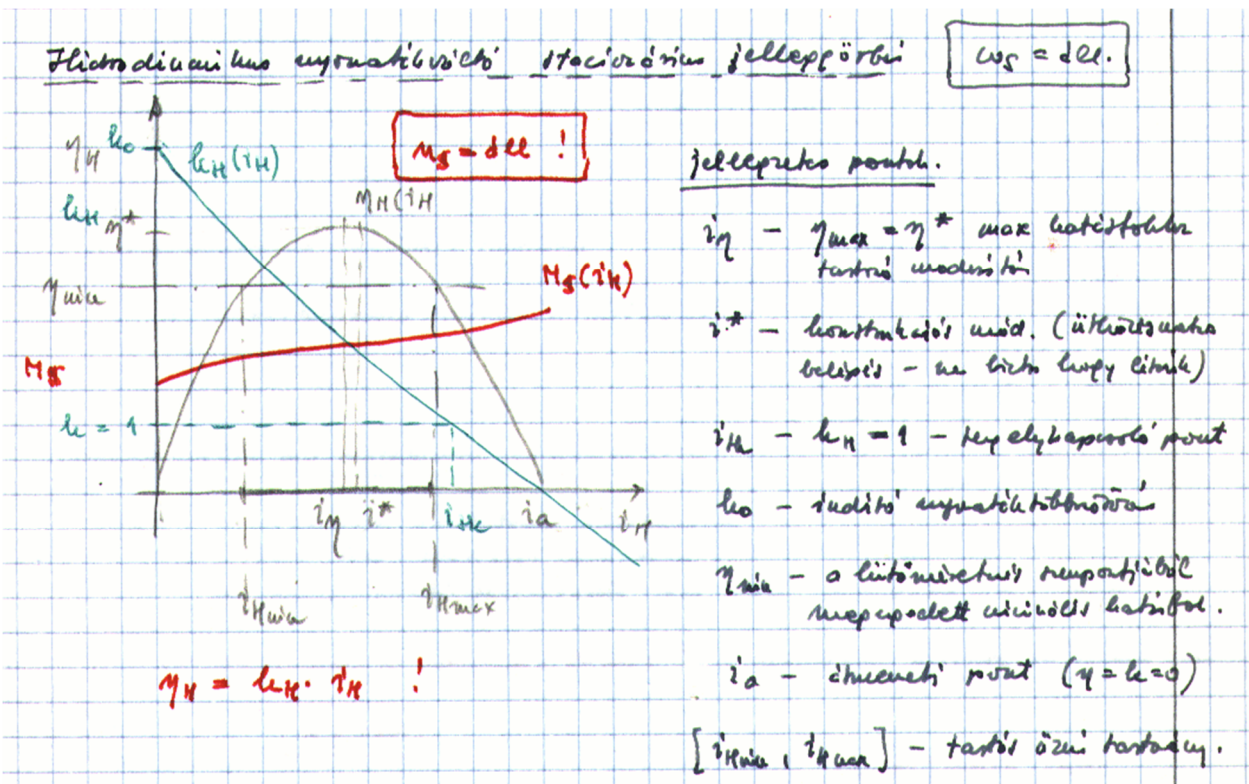 Hidrodinamikus nyomatékváltó stacionárius jelleggörbéi
ωS = áll.
MS = áll !
ηH
k0
kH(iH)
kH
η*
ηH(iH
ηmin
MS(iH)
MS
k = 1
iη
i*
iHk
ia
iH
iHmin
iHmax
ηH = kH · iH !
jellegzetes pontok.
iη – ηmax = η* max hatásfokhoz
tartozó módosítás
i* – konstrukciós mód. (ütközésmentes
belépés – nem biztos hogy létezik)
iHk – kH = 1 – tengelykapcsoló pont
k0 – indító nyomatéktöbbszörözés
ηmin – a hűtőméretezés szempontjából
megengedett minimális hatásfok.
ia – átmeneti pont (η=k=0)
[iHmin , iHmax] – tartós üzemi tartomány.